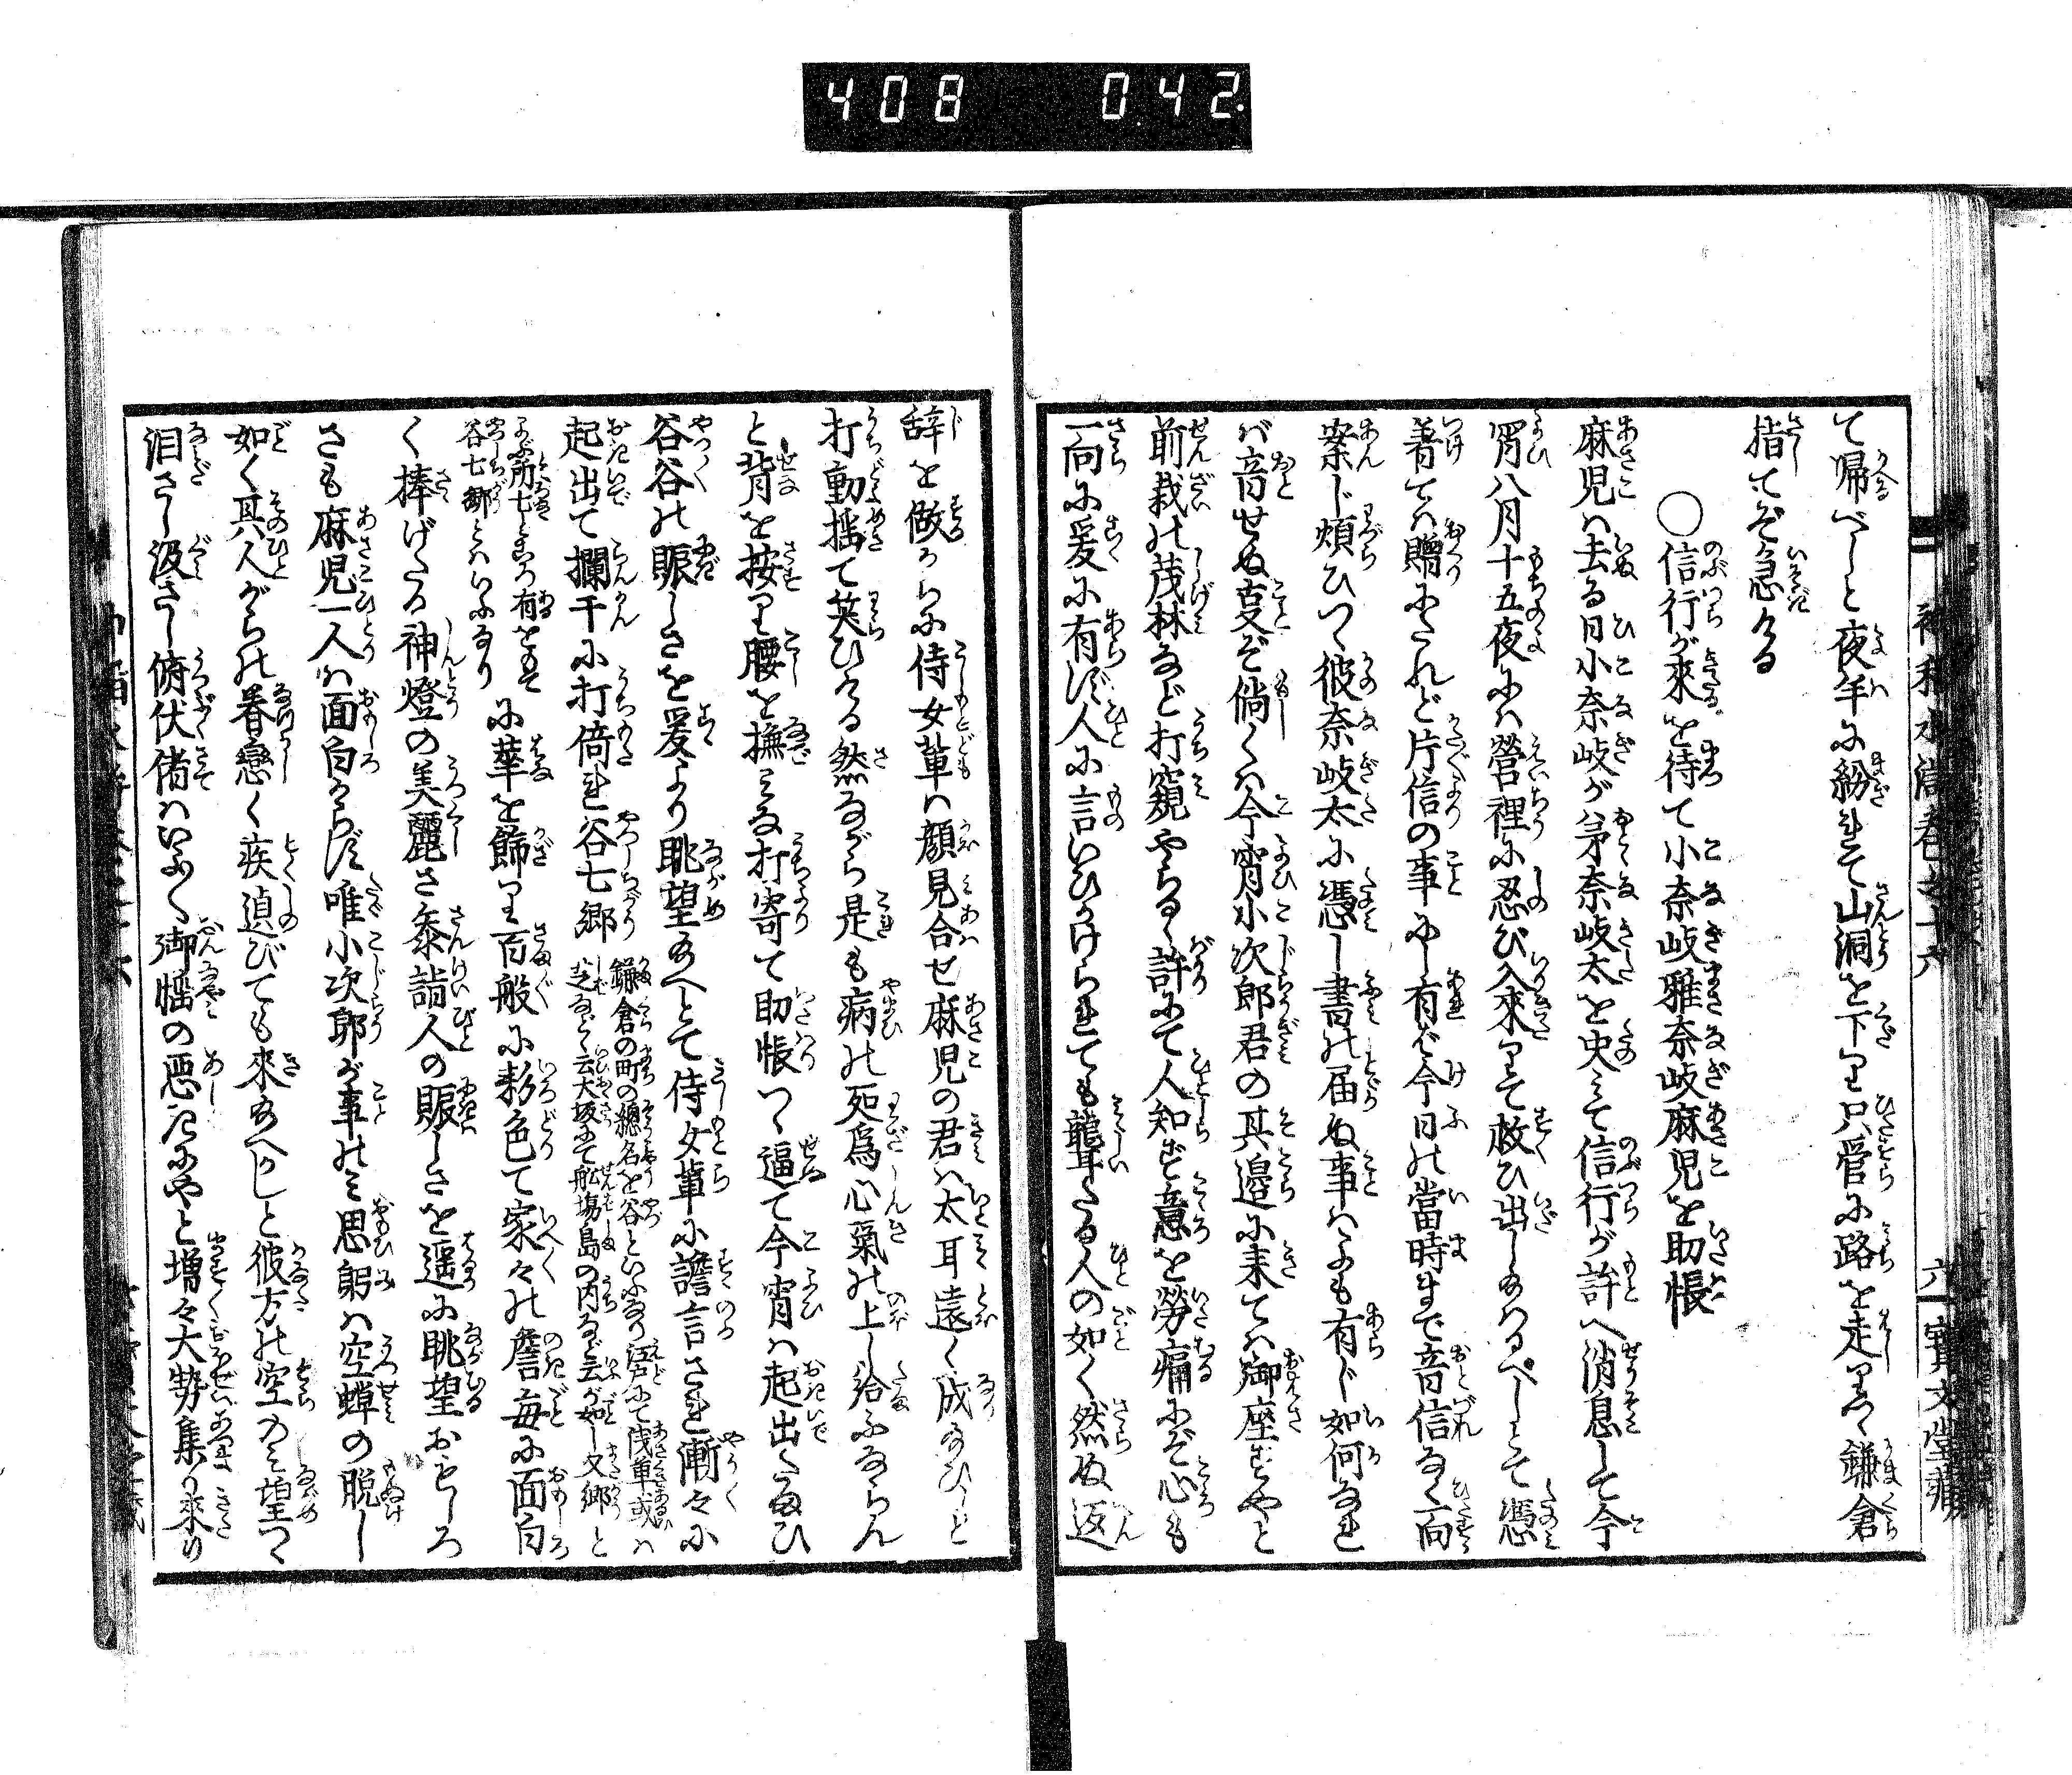 408 042
て帰べしと夜半に紛れて山洞を下り只管に路を走りつゝ鎌倉
指てぞ急ける
○信行が來を待て小奈岐雅奈岐麻児を助帳
麻児は去る日小奈岐が弟奈岐太を史みて信行が許へ消息して今
宵八月十五夜には營裡に忍び入來りて救ひ出し給はるべしとて憑
着ては贈にたれど片信の事にし有ば今日の當時まで音信なく一向
案じ煩ひつゝ彼奈岐太に憑し書の届ぬ事はよも有じ如何なれ
ば音せぬ支ぞ倘くは今宵小次郎君の其邉に来ては御座ずやと
前栽の茂林など打窺やらるゝ許にて人知ず意を勞痛にぞ心も
一向に爰に有ず人に言いひかけられても聾たる人の如く然ぬ返
辞を做るからに侍女輩は顔見合せ麻児の君は太耳遠く成給ひしと
打動揺て笑ひける然ながら是も病の所爲心氣の上し給ふならん
と背を按り腰を撫みな打寄て助帳つゝ逼て今宵は起出たまひ
谷谷の賑しさを爰より眺望給へとて侍女輩に譫言され漸々に
起出て欄干に打倚れ谷七郷
鎌倉の町の總名を谷といふなり江戸にて浅草或は
芝なく云大坂にて舩塲島の内など云が如し又郷と
よぶ所七ところ有をもて
谷七郷とはいふなり
に華を飾り百般に彩色て家々の簷毎に面白
く捧げたる神燈の美麗さ叅詣人の賑しさを遥に眺望おもしろ
さも麻児一人は面白からず唯小次郎が事のみ思ひ躬は空蝉の脱し
如く其人がらの眷戀く疾迫びても來給へかしと彼方の空のみ望つゝ
泪さし汲さし俯伏偖はいよ〳〵御惱の悪きにやと増々大勢集り來り